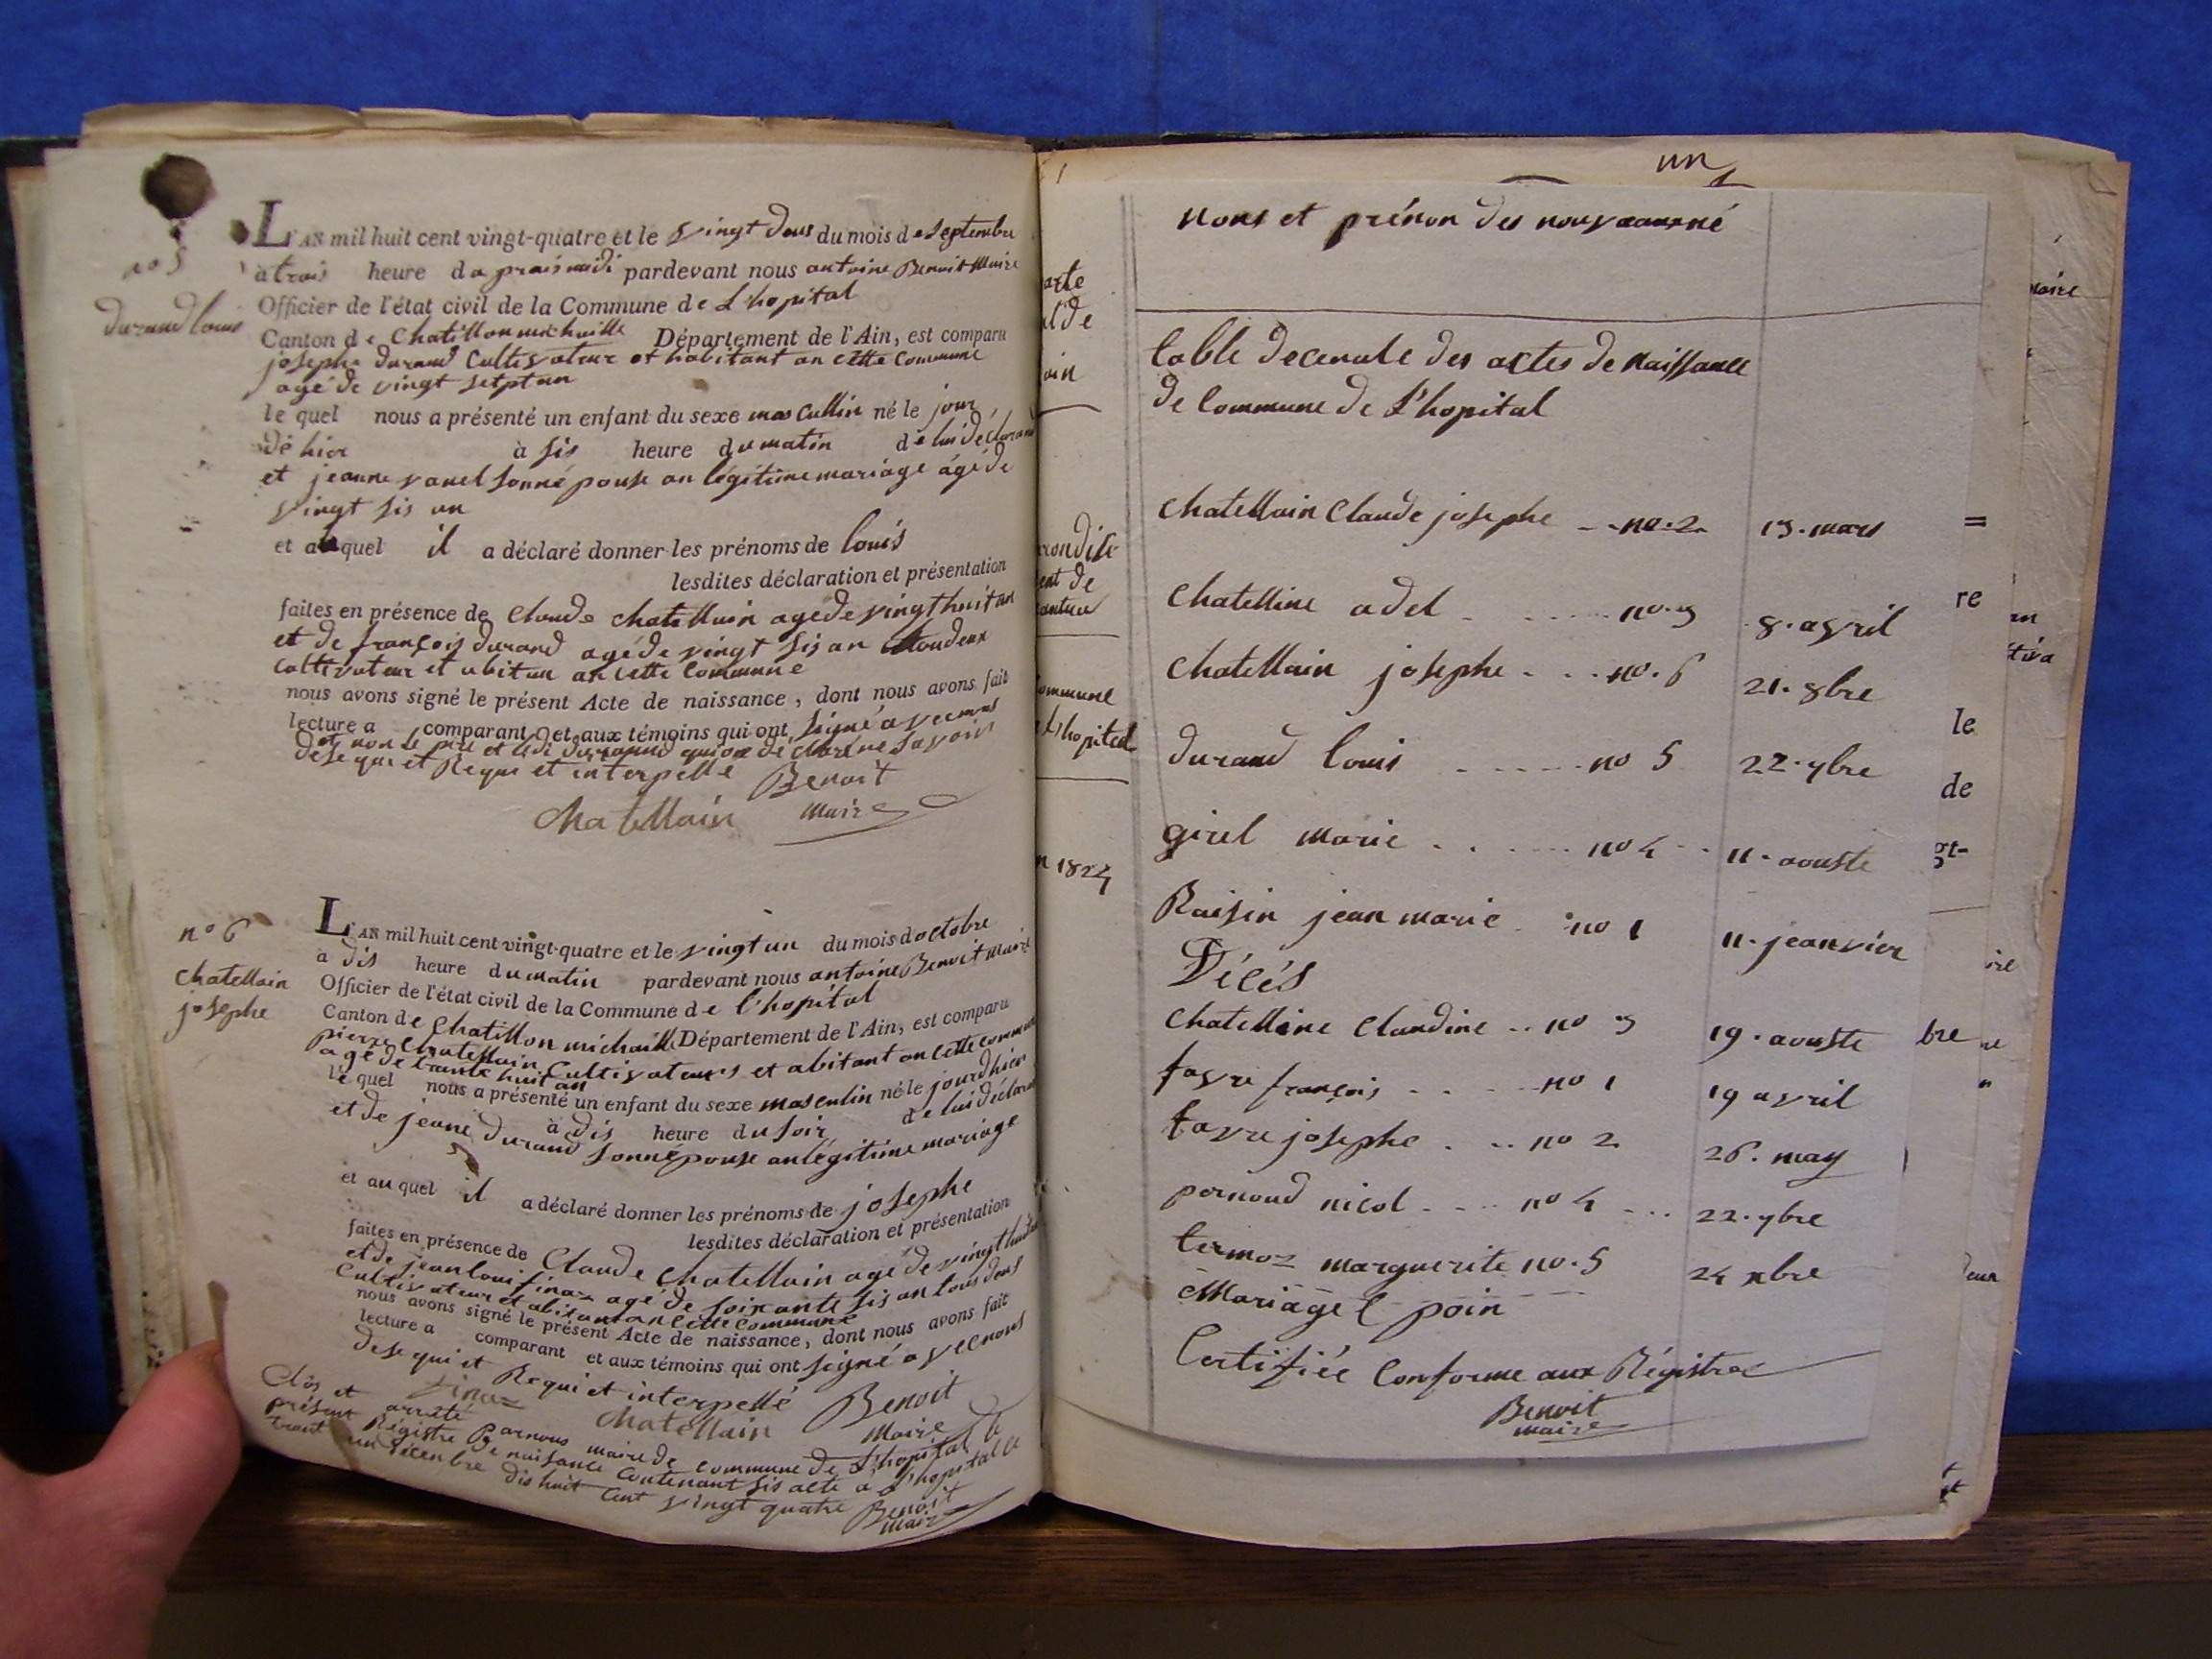 no 5
durand louis
L'AN mil huit cent vingt-quatre et le vingt deus du mois de septembre
à trois heure da prais midi pardevant nous antoine Benoit Maire
Officier de l'état civil de la Commune de L'hopital
Canton de Chatillon michaille Département de l'Ain, est comparu
josephe durand Cultivateur et habitant an cette Commune
agé de vingt setpt an
le quel nous a présenté un enfant du sexe mas Cullin né le jour
dé hier à sis heure du matin de lui déclarant
et jeanne vanel sonné pouse an légitime mariage âgé de
vingt sis an
et auquel il a déclaré donner les prénoms de louis
lesdites déclaration et présentation
faites en présence de Claude chatellain agé de vingt huit an
et de françois durand agé de vingt sis an toudeux
Coltivateur et abitan an cette Commune
nous avons signé le présent Acte de naissance, dont nous avons fait
lecture a comparant et aux témoins qui ont signé avec nous
et non le pere et ledi durand qui on dé clare ne savoir
dese qui et Requi et interpellé Benoit
chatellain Maire
n° 6
chatellain
josephe
L'AN mil huit cent vingt-quatre et le vingt un du mois doctobre
à dis heure du matin pardevant nous antoine Benoit Maire
Officier de l'état civil de la Commune de l'hopital
Canton de Chatillon michaille Département de l'Ain, est comparu
pierre Chatellain Cultivateurs et abitant an cette commune
agé de trante huit an
le quel nous a présenté un enfant du sexe masculin né le jour d'hier
à dis heure du soir de lui déclarant
et de jeane durand sonné pouse an légitime mariage
et au quel il a déclaré donner les prénoms de josephe
lesdites déclaration et présentation
faites en présence de Claude Chatellain agé de vingt huit
et de jean loui finaz agé de soixante sis an tous deus
Cultivateur et abitant an Cette Commune
nous avons signé le présent Acte de naissance, dont nous avons fait
lecture a comparant et aux témoins qui ont signé avec nous
dese qui et Requi et interpellé Benoit
finaz chatellain Maire
Clos et arrété par nous maire de commune de L'hopital le
présent Régistre de naissance Contenant sis acte à L'hopital le
trant un décenbre dis huit Cent vingt quatre Benoit
Maire
un
noms et prénon des nouveaux né
table decenale des actes de Naissance
de Commune de L'hopital
chatellain Claude josephe no. 2 13. mars
chatelline adel no. 3 8. avril
chatellain josephe no. 6 21. 8bre
durand louis no 5 22. 7bre
girel marie no 4 11. aouste
Raisin jean marie no 1 11. jeanvier
Décés
chatelline Claudine no 3 19. aouste
favre françois no 1 19 avril
favre josephe no 2 26. may
pernoud nicol no 4 22. 7bre
termoz marguerite no. 5 24 xbre
Mariage poin
Certifiée Conforme aux Régistre
Benoit
maire
ommune
hopital
n 1824
re
le
de
bre